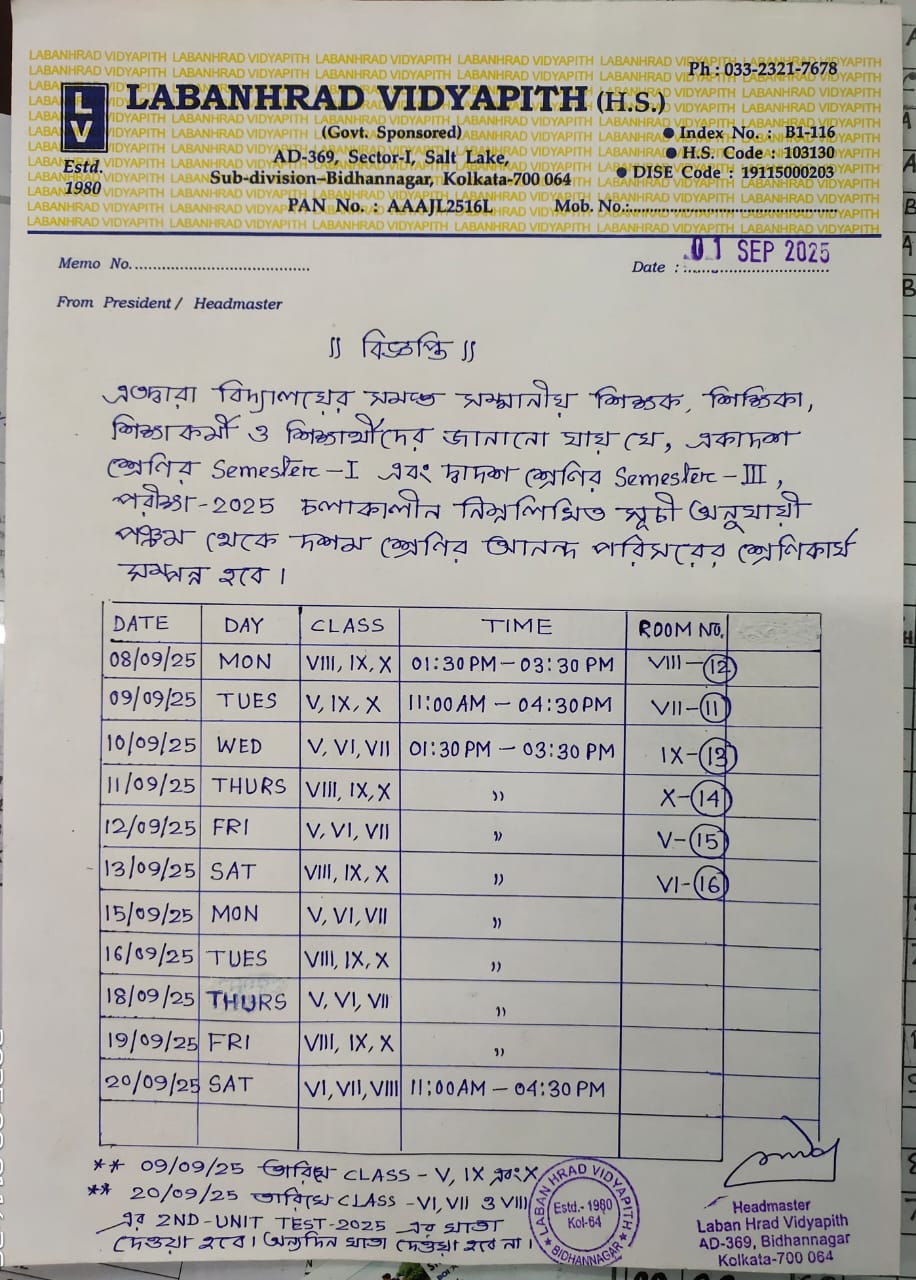 Ph : 033-2321-7678
LV
LABANHRAD VIDYAPITH (H.S.)
(Govt. Sponsored)
● Index No. : B1-116
Estd.
1980
AD-369, Sector-I, Salt Lake,
● H.S. Code : 103130
Sub-division-Bidhannagar, Kolkata-700 064
● DISE Code : 19115000203
PAN No. : AAAJL2516L
Mob. No.:
Memo No.
Date : 01 SEP 2025
From President / Headmaster
॥ বিজ্ঞপ্তি ॥
এতদ্বারা বিদ্যালয়ের সমস্ত সম্মানীয় শিক্ষক, শিক্ষিকা,
শিক্ষাকর্মী ও শিক্ষার্থীদের জানানো যায় যে, একাদশ
শ্রেণির Semester-I এবং দ্বাদশ শ্রেণির Semester-III,
পরীক্ষা-2025 চলাকালীন নিম্নলিখিত সূচী অনুযায়ী
পঞ্চম থেকে দশম শ্রেণির আনন্দ পরিসরের শ্রেণিকার্য
সম্পন্ন হবে।
DATE DAY CLASS TIME ROOM NO.
08/09/25 MON VIII, IX, X 01:30 PM - 03:30 PM VIII-12
09/09/25 TUES V, IX, X 11:00 AM - 04:30 PM VII-11
10/09/25 WED V, VI, VII 01:30 PM - 03:30 PM IX-13
11/09/25 THURS VIII, IX, X ,, X-14
12/09/25 FRI V, VI, VII ,, V-15
13/09/25 SAT VIII, IX, X ,, VI-16
15/09/25 MON V, VI, VII ,,
16/09/25 TUES VIII, IX, X ,,
18/09/25 THURS V, VI, VII ,,
19/09/25 FRI VIII, IX, X ,,
20/09/25 SAT VI, VII, VIII 11:00 AM - 04:30 PM
** 09/09/25 তারিখে CLASS - V, IX এবং X
** 20/09/25 তারিখে CLASS - VI, VII ও VIII
এর 2ND-UNIT TEST-2025 এর খাতা
দেওয়া হবে। অন্যদিন খাতা দেওয়া হবে না।
LABAN HRAD VIDYAPITH
Estd.- 1980
Kol-64
★ BIDHANNAGAR ★
Headmaster
Laban Hrad Vidyapith
AD-369, Bidhannagar
Kolkata-700 064